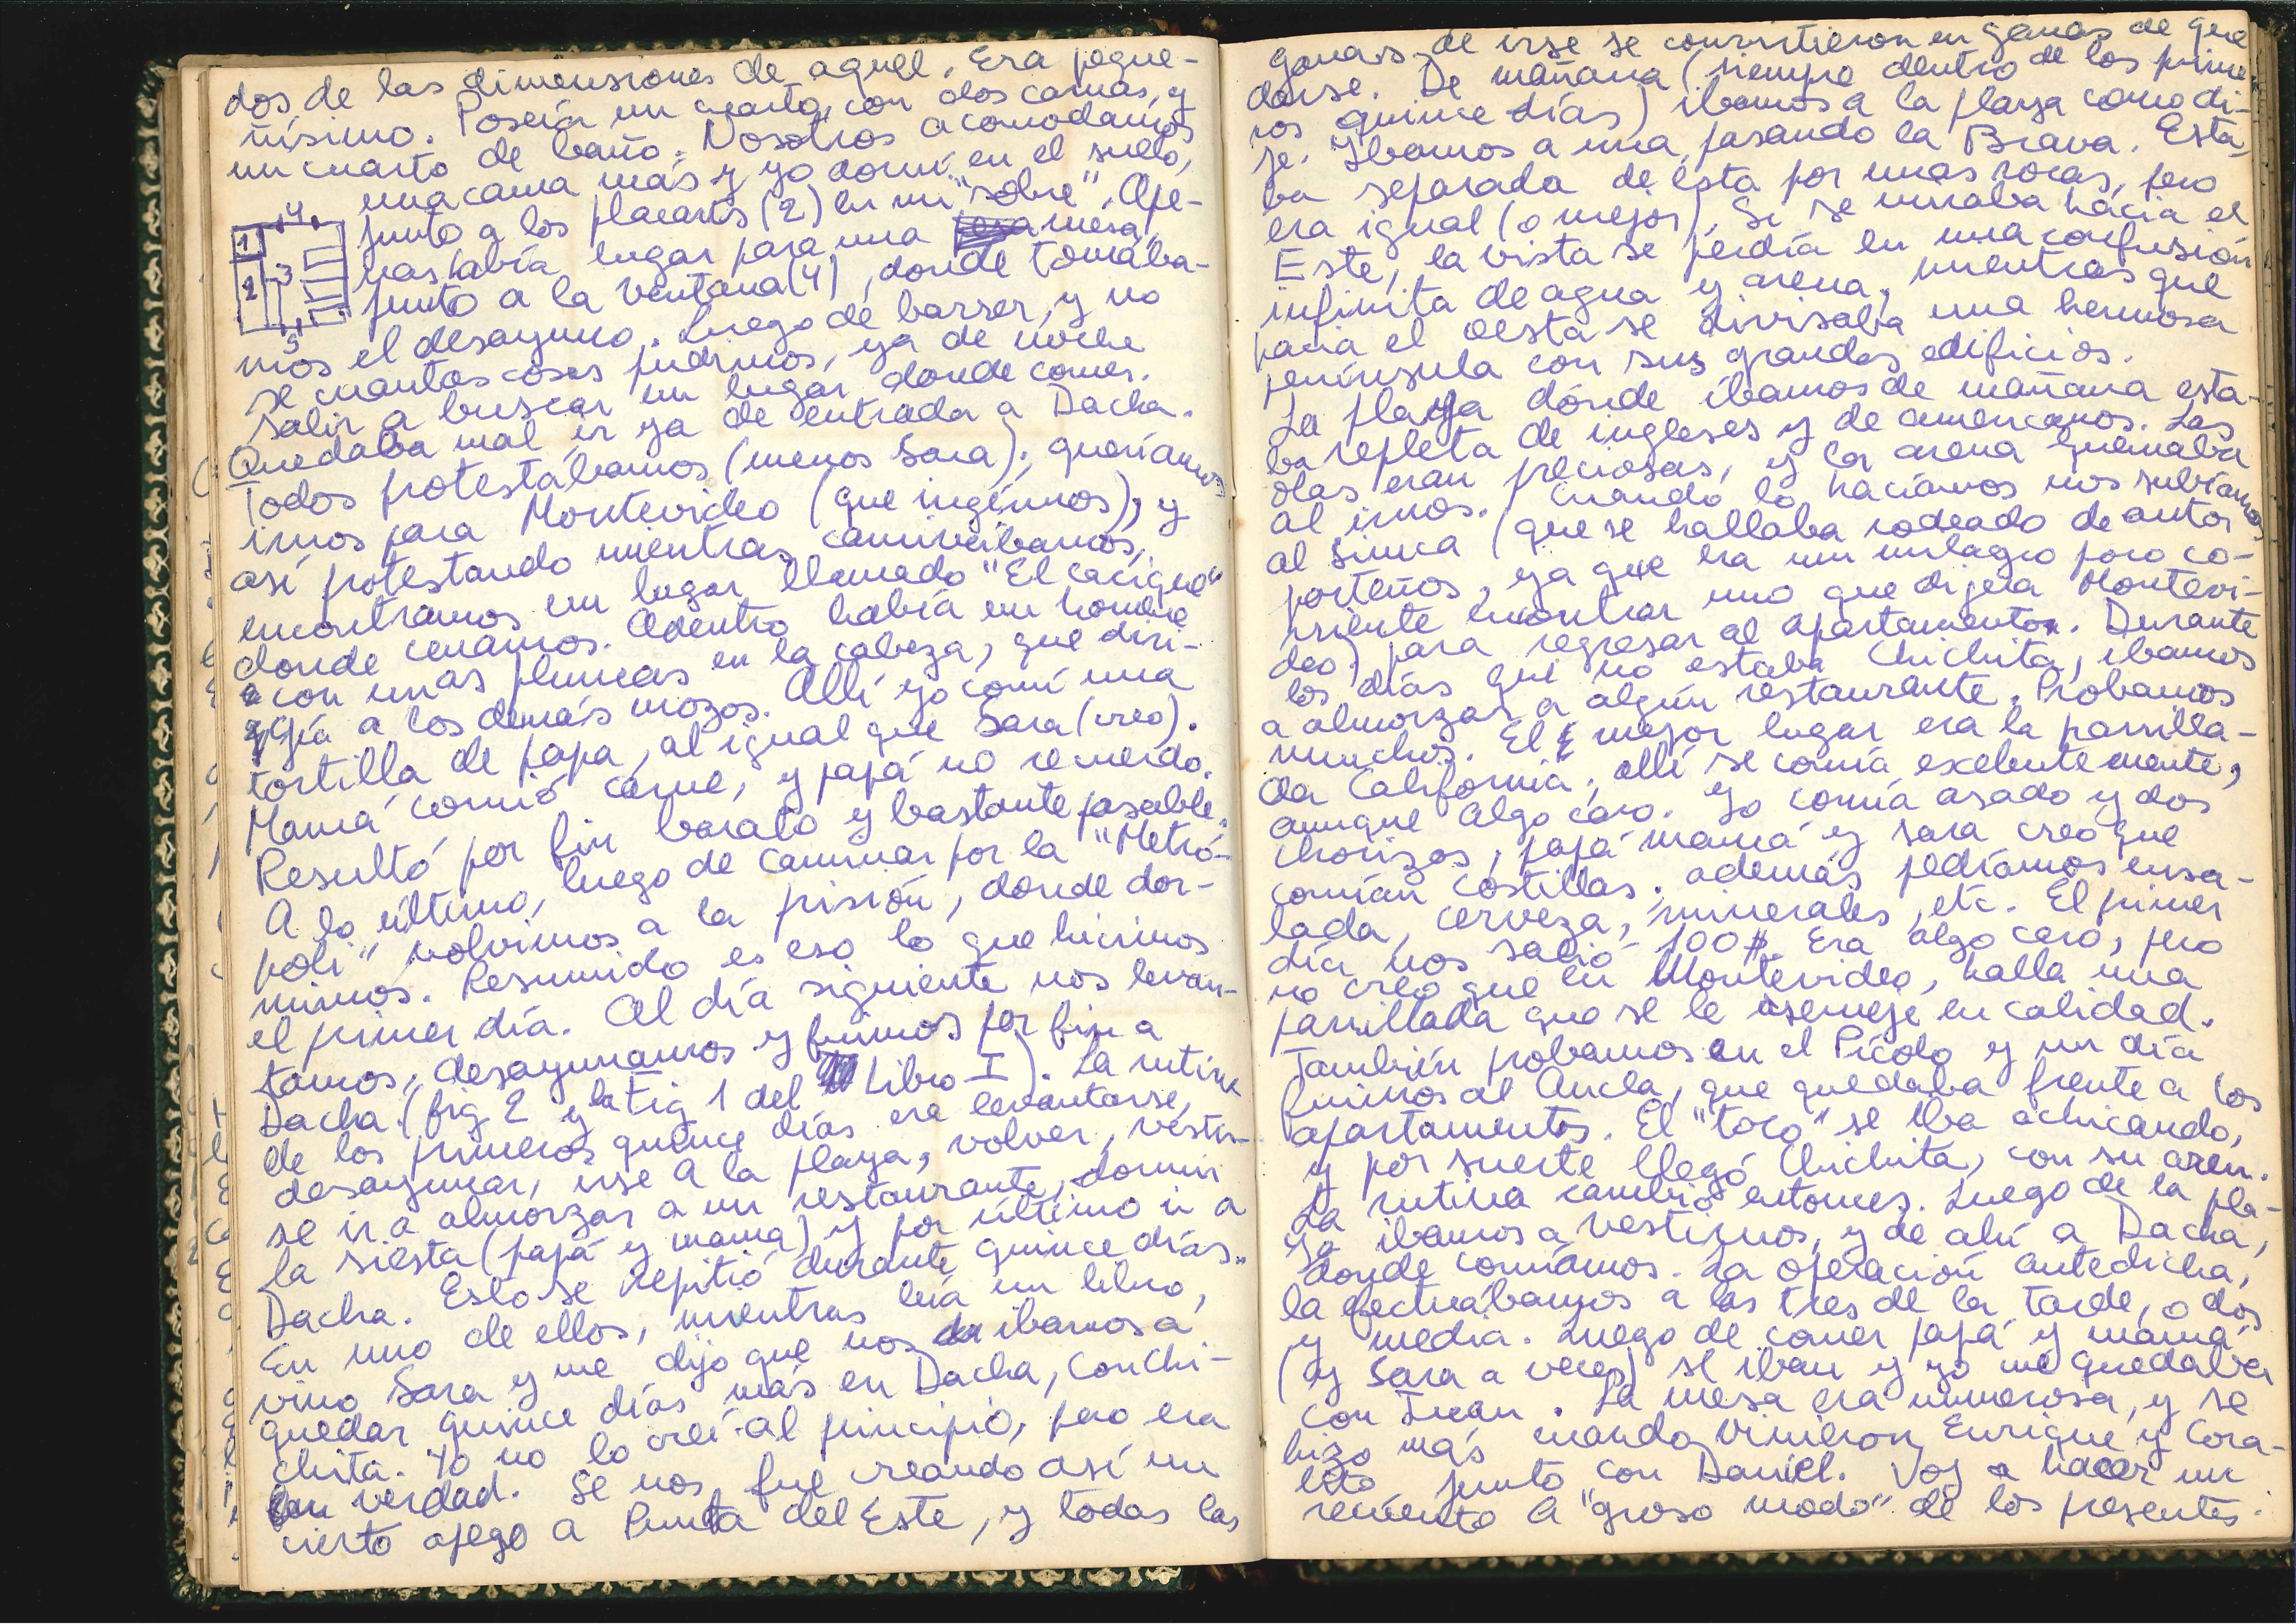 dos de las dimensiones de aquel. Era peque-
ñísimo. Poseía un cuarto, con dos camas, y
un cuarto de baño. Nosotros acomodamos
una cama más y yo dormí en el suelo,
junto a los placards (2) en mi "sobre". Ape-
nas había lugar para una mesa,
junto a la ventana (4), donde tomába-
1
2
3
4
5
mos el desayuno. Luego de barrer, y no
se cuantas cosas pudimos, ya de noche
salir a buscar un lugar donde comer.
Quedaba mal ir ya de entrada a Dacha.
Todos protestabamos (menos Sara); queríamos
irnos para Montevideo (que ingénuos); y
así protestando mientras caminábamos,
encontramos un lugar llamado "El Cacique"
donde cenamos. Adentro había un hombre
con unas plumas en la cabeza, que diri-
gía a los demás mozos. Allí yo comí una
tortilla de papa, al igual que Sara (creo).
Mamá comió carne, y papá no recuerdo.
Resultó por fin barato y bastante pasable.
A lo último, luego de caminar por la "Metró-
poli" volvimos a la prisión, donde dor-
mimos. Resumido es eso lo que hicimos
el primer día. Al día siguiente nos levan-
tamos, desayunamos y fuimos por fin a
Dacha. (fig 2 y la Fig 1 del Libro I). La rutina
de los primeros quince días era levantarse,
desayunar, irse a la playa, volver, vestir-
se ir a almorzar a un restaurante, dormir
la siesta (papá y mamá) y por último ir a
Dacha. Esto se repitió durante quince días.
En uno de ellos, mientras leía un libro,
vino Sara y me dijo que nos ibamos a
quedar quince días más en Dacha, con Chi-
chita. Yo no lo creí al principio, pero era
verdad. Se nos fue creando así un
cierto apego a Punta del Este, y todas las
ganas de irse se convirtieron en ganas de que
darse. De mañana (siempre dentro de los prime-
ros quince días) ibamos a la playa como di-
je. Ibamos a una, pasando la Brava. Esta
ba separada de ésta por unas rocas, pero
era igual (o mejor). Si se miraba hacia el
Este, la vista se perdía en una confusión
infinita de agua y arena, mientras que
hacia el oeste se divisaba una hermosa
península con sus grandes edificios.
La playa dónde íbamos de mañana esta-
ba repleta de ingleses y de americanos. Las
olas eran preciosas, y la arena quemaba
al irnos. Cuando lo hacíamos nos subíamos
al Simca (que se hallaba rodeado de autos
porteños, ya que era un milagro poco co-
rriente encontrar uno que dijera Montevi-
deo) para regresar al apartamento. Durante
los días que no estaba Chichita, ibamos
a almorzar a algún restaurante. Probamos
muchos. El mejor lugar era la parrilla-
da California; allí se comía exelentemente,
aunque algo caro. Yo comía asado y dos
chorizos; papá mamá y Sara creo que
comían costillas; además pedíamos ensa-
lada, cerveza, minerales, etc. El primer
día nos salió 100$. Era algo caro, pero
no creo que en Montevideo, halla una
parrillada que se le asemeje en calidad.
También probamos en el Pícolo y un día
fuimos al Ancla, que quedaba frente a los
apartamentos. El "toco" se iba achicando,
y por suerte llegó Chichita, con su
La rutina cambió entonces. Luego de la pla-
ya ibamos a vestirnos, y de ahí a Dacha,
donde comíamos. La operación antedicha,
la efectuábamos a las tres de la tarde, o dos
y media. Luego de comer papá y mamá
(y Sara a veces) se iban y yo me quedaba
con Juan. La mesa era numerosa, y se
hizo más cuando vinieron Enrique y Cora-
lito junto con Daniel. Voy a hacer un
recuento a "groso modo" de los presentes.